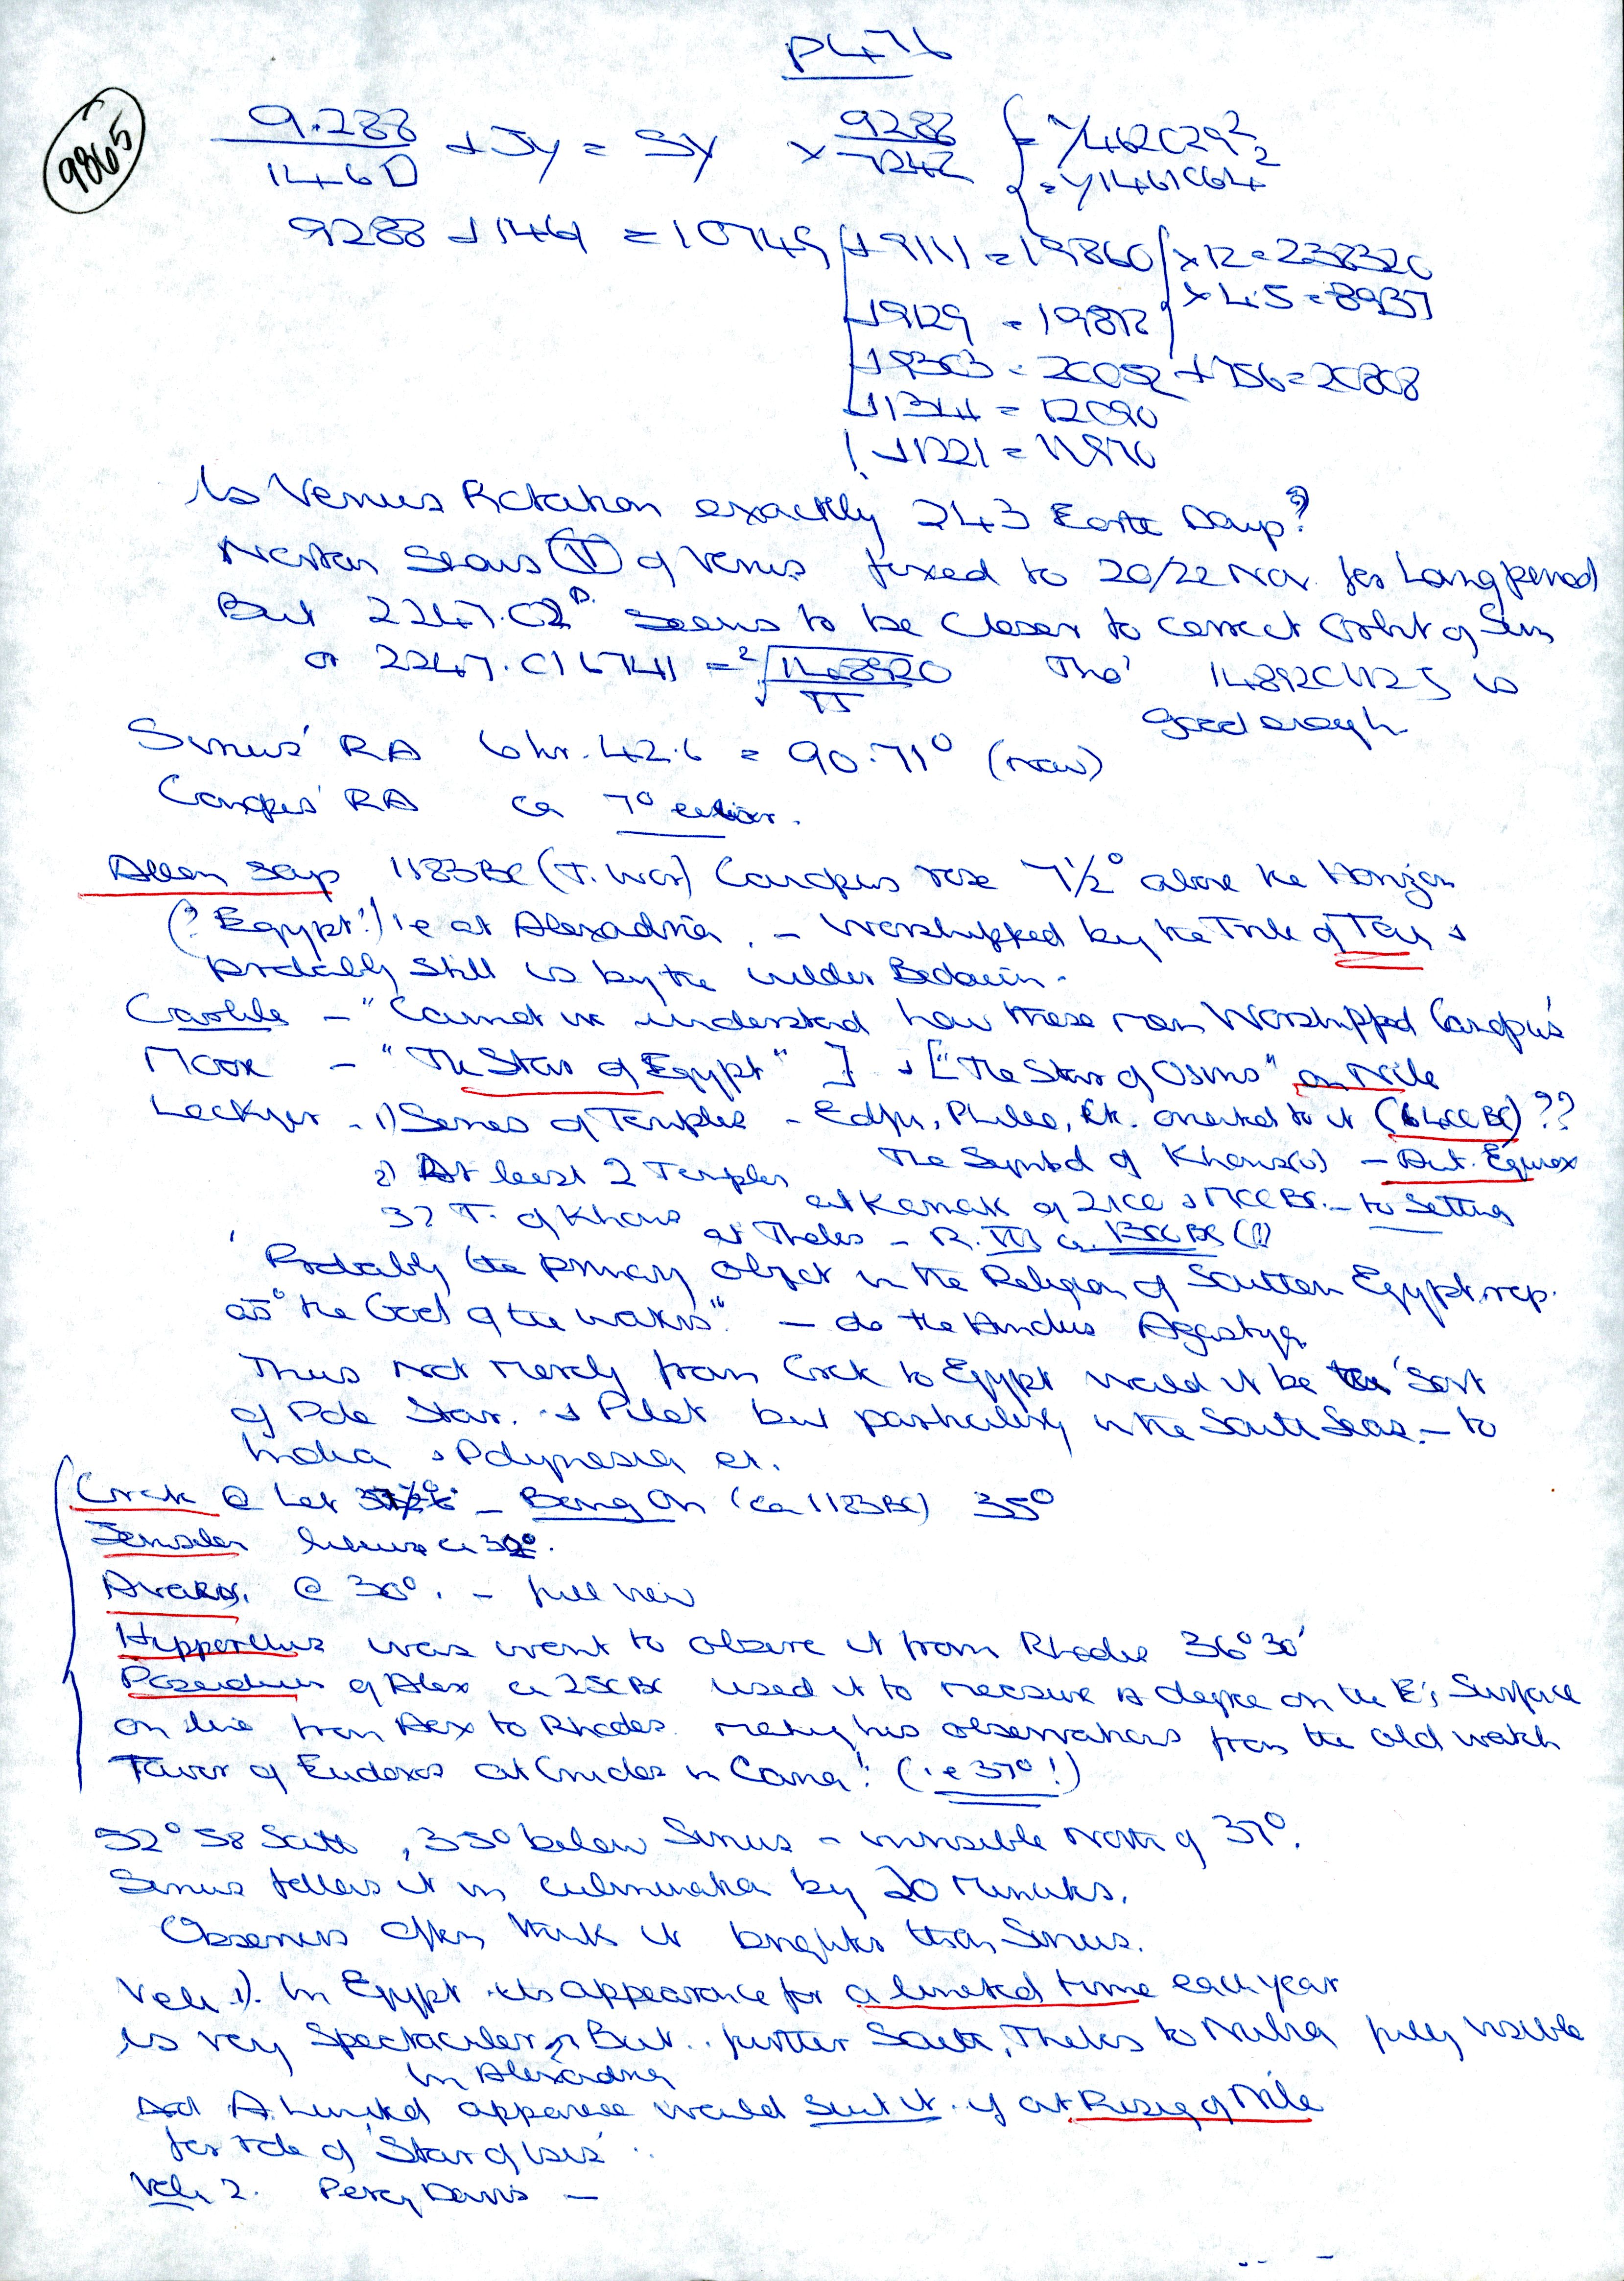 p476
9865
9.288 / 1460 + Jy = SY × 9288 / 7242 { = √/462029²₂
= √/1461064
9288 + 1461 = 10749 + 9111 = 19860 × 12 = 238320
× 4.5 = 8937
+ 9129 = 19878
+ 9303 = 20052 + 756 = 20808
+ 1344 = 12090
+ 1221 = 11970
Is Venus Rotation exactly 243 Earth Days?
Newton Seems of Venus fixed to 20/22 Nov. for Long period
But 2247.02 D. seems to be closer to correct Orbit of Sun
or 2247.016741 = ²√ 14.8920 / π Tho' 148920 is
good enough
Sirius' RA 6 hr. 42.6 = 90.71° (now)
Canopus' RA ca 7° earlier.
Allen says 1183 BC (T. War) Canopus rose 7½° above the Horizon
(? Egypt!) ie at Alexadria. - Worshipped by the Tribe of Tai &
probably still is by the wilder Bedawin.
Carlile - "Cannot we understand how these men Worshipped Canopus'
Moor - "The Star of Egypt" ] & ["The Star of Osiris" on Nile
Lockyer - 1) Series of Temples - Edfu, Philae, etc. oriented to it (6400 BC) ??
The Symbol of Khons(u) - Aut. Equinox
2) At least 2 Temples at Karnak of 2100 & 1700 BC. - to Setting
3? T. of Khons at Thebes - R. III ca. 1300 BC (?)
'Probably the primary object in the Religion of Southern Egypt, rep.
as "the God of the waters" - do the Hindus Agastya
Thus not merely from Crete to Egypt would it be the 'Sort
of Pole Star. & Pilot but particularly in the South Seas - to
India & Polynesia etc.
Crete @ Lat - Being On (ca 1183 BC) 35°
Jerusalem ca 32°.
@ 30°. - full view
Hipparchus was wont to observe it from Rhodes 36° 30'
Poseidonius of Alex ca 250 BC used it to measure a degree on the E's Surface
on line from Alex to Rhodes. making his observations from the old watch
Tower of Eudoxos at Cnidos in Caria! (ie 37°!)
52° 58 South, 35° below Sirius - invisible North of 37°.
Sirius follows it in culmination by 20 minutes.
Observers often think it brighter than Sirius.
1). In Egypt its appearance for a limited time each year
is very Spectacular But.. further South, Thebes to Nubia fully visible
In Alexadria
And A Limited appearance would suit it. if at Rising of Nile
for role of 'Star of Isis'
2. Percy Davis -